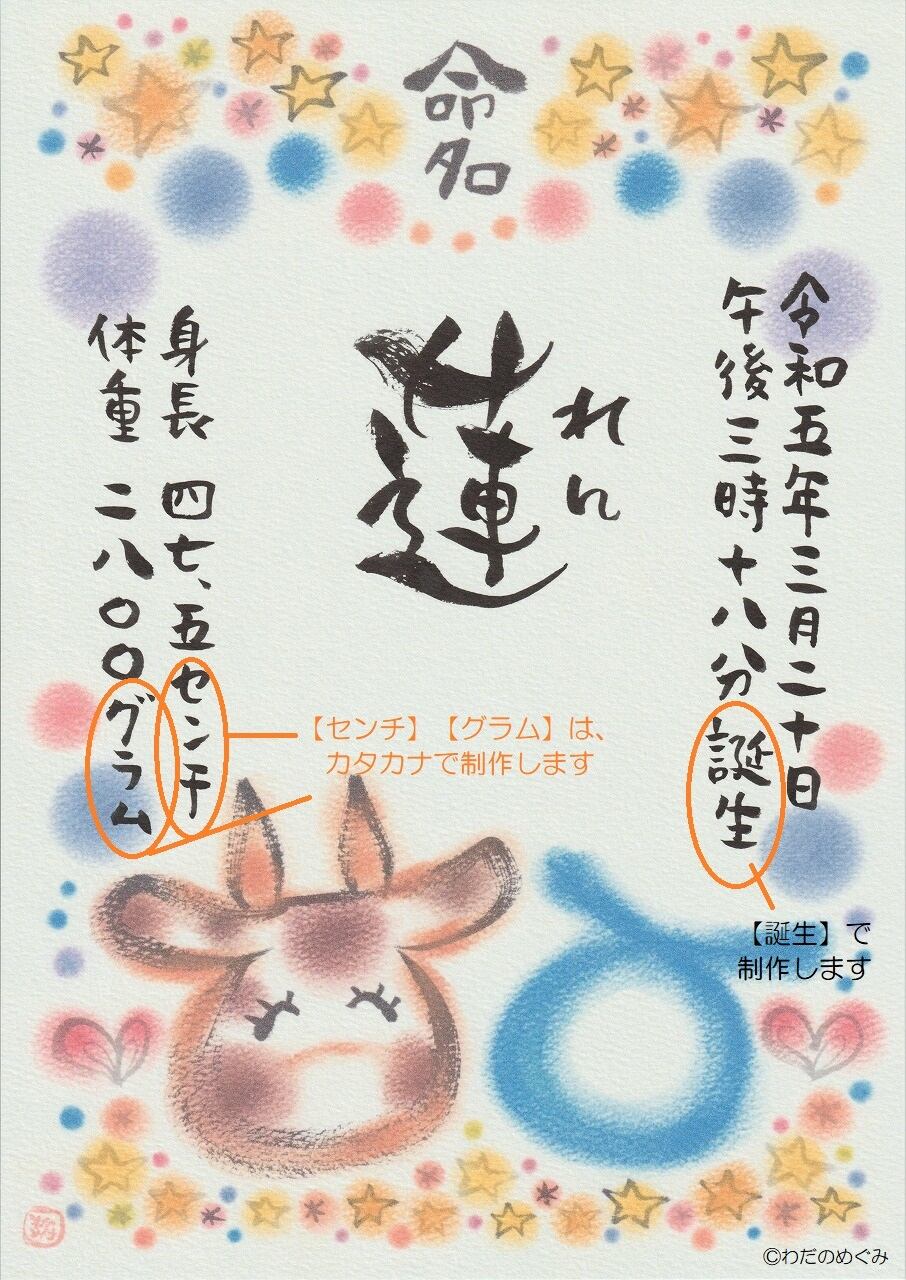 命名
令和五年三月二十日
午後三時十八分誕生
れん
蓮
身長 四七、五センチ
体重 二八〇〇グラム
【センチ】【グラム】は、
カタカナで制作します
【誕生】で
制作します
©わだのめぐみ